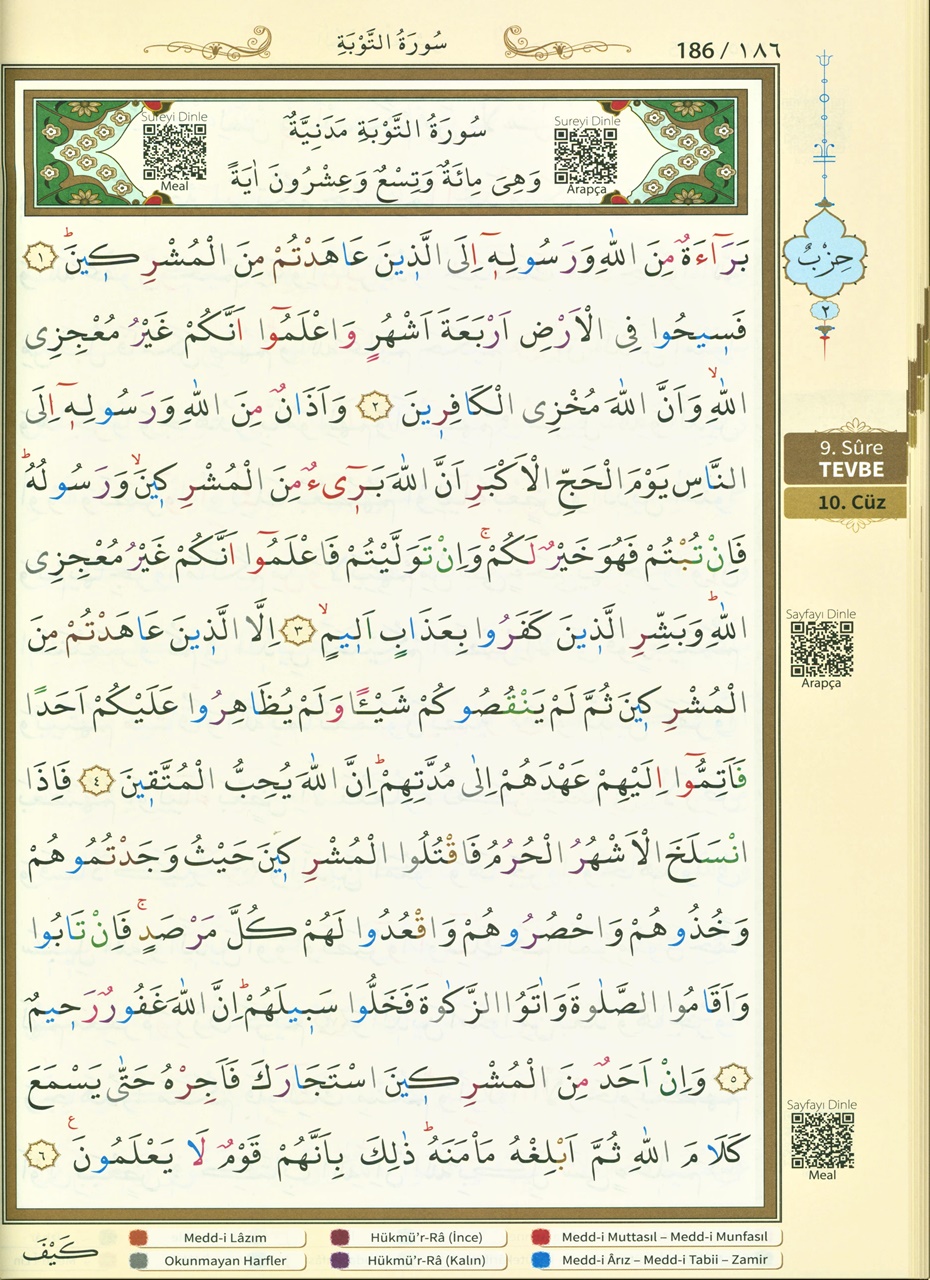 سُورَةُ التَّوْبَةِ
186 / ١٨٦
Sureyi Dinle
Meal
سُورَةُ التَّوْبَةِ مَدَنِيَّةٌ
وَهِىَ مِائَةٌ وَتِسْعٌ وَعِشْرُونَ اٰيَةً
Sureyi Dinle
Arapça
بَرَٓاءَةٌ مِنَ اللّٰهِ وَرَسُولِه۪ٓ اِلَى الَّذ۪ينَ عَاهَدْتُمْ مِنَ الْمُشْرِك۪ينَۜ ﴿١﴾
فَس۪يحُوا فِى الْاَرْضِ اَرْبَعَةَ اَشْهُرٍ وَاعْلَمُٓوا اَنَّكُمْ غَيْرُ مُعْجِزِى
اللّٰهِۙ وَاَنَّ اللّٰهَ مُخْزِى الْكَافِر۪ينَ ﴿٢﴾ وَاَذَانٌ مِنَ اللّٰهِ وَرَسُولِه۪ٓ اِلَى
النَّاسِ يَوْمَ الْحَجِّ الْاَكْبَرِ اَنَّ اللّٰهَ بَر۪ٓىءٌ مِنَ الْمُشْرِك۪ينَۙ وَرَسُولُهُۜ
فَاِنْ تُبْتُمْ فَهُوَ خَيْرٌ لَكُمْۚ وَاِنْ تَوَلَّيْتُمْ فَاعْلَمُٓوا اَنَّكُمْ غَيْرُ مُعْجِزِى
اللّٰهِۜ وَبَشِّرِ الَّذ۪ينَ كَفَرُوا بِعَذَابٍ اَل۪يمٍۙ ﴿٣﴾ اِلَّا الَّذ۪ينَ عَاهَدْتُمْ مِنَ
الْمُشْرِك۪ينَ ثُمَّ لَمْ يَنْقُصُوكُمْ شَيْـًٔا وَلَمْ يُظَاهِرُوا عَلَيْكُمْ اَحَدًا
فَاَتِمُّٓوا اِلَيْهِمْ عَهْدَهُمْ اِلٰى مُدَّتِهِمْۜ اِنَّ اللّٰهَ يُحِبُّ الْمُتَّق۪ينَ ﴿٤﴾ فَاِذَا
انْسَلَخَ الْاَشْهُرُ الْحُرُمُ فَاقْتُلُوا الْمُشْرِك۪ينَ حَيْثُ وَجَدْتُمُوهُمْ
وَخُذُوهُمْ وَاحْصُرُوهُمْ وَاقْعُدُوا لَهُمْ كُلَّ مَرْصَدٍۚ فَاِنْ تَابُوا
وَاَقَامُوا الصَّلٰوةَ وَاٰتَوُا الزَّكٰوةَ فَخَلُّوا سَب۪يلَهُمْۜ اِنَّ اللّٰهَ غَفُورٌ رَح۪يمٌ
﴿٥﴾ وَاِنْ اَحَدٌ مِنَ الْمُشْرِك۪ينَ اسْتَجَارَكَ فَاَجِرْهُ حَتّٰى يَسْمَعَ
كَلَامَ اللّٰهِ ثُمَّ اَبْلِغْهُ مَأْمَنَهُۜ ذٰلِكَ بِاَنَّهُمْ قَوْمٌ لَا يَعْلَمُونَ ﴿٦﴾ ع
حِزْبٌ
٢
9. Sûre
TEVBE
10. Cüz
Sayfayı Dinle
Arapça
Sayfayı Dinle
Meal
Medd-i Lâzım
Hükmü’r-Râ (İnce)
Medd-i Muttasıl – Medd-i Munfasıl
Okunmayan Harfler
Hükmü’r-Râ (Kalın)
Medd-i Ârız – Medd-i Tabii – Zamir
كَيْفَ